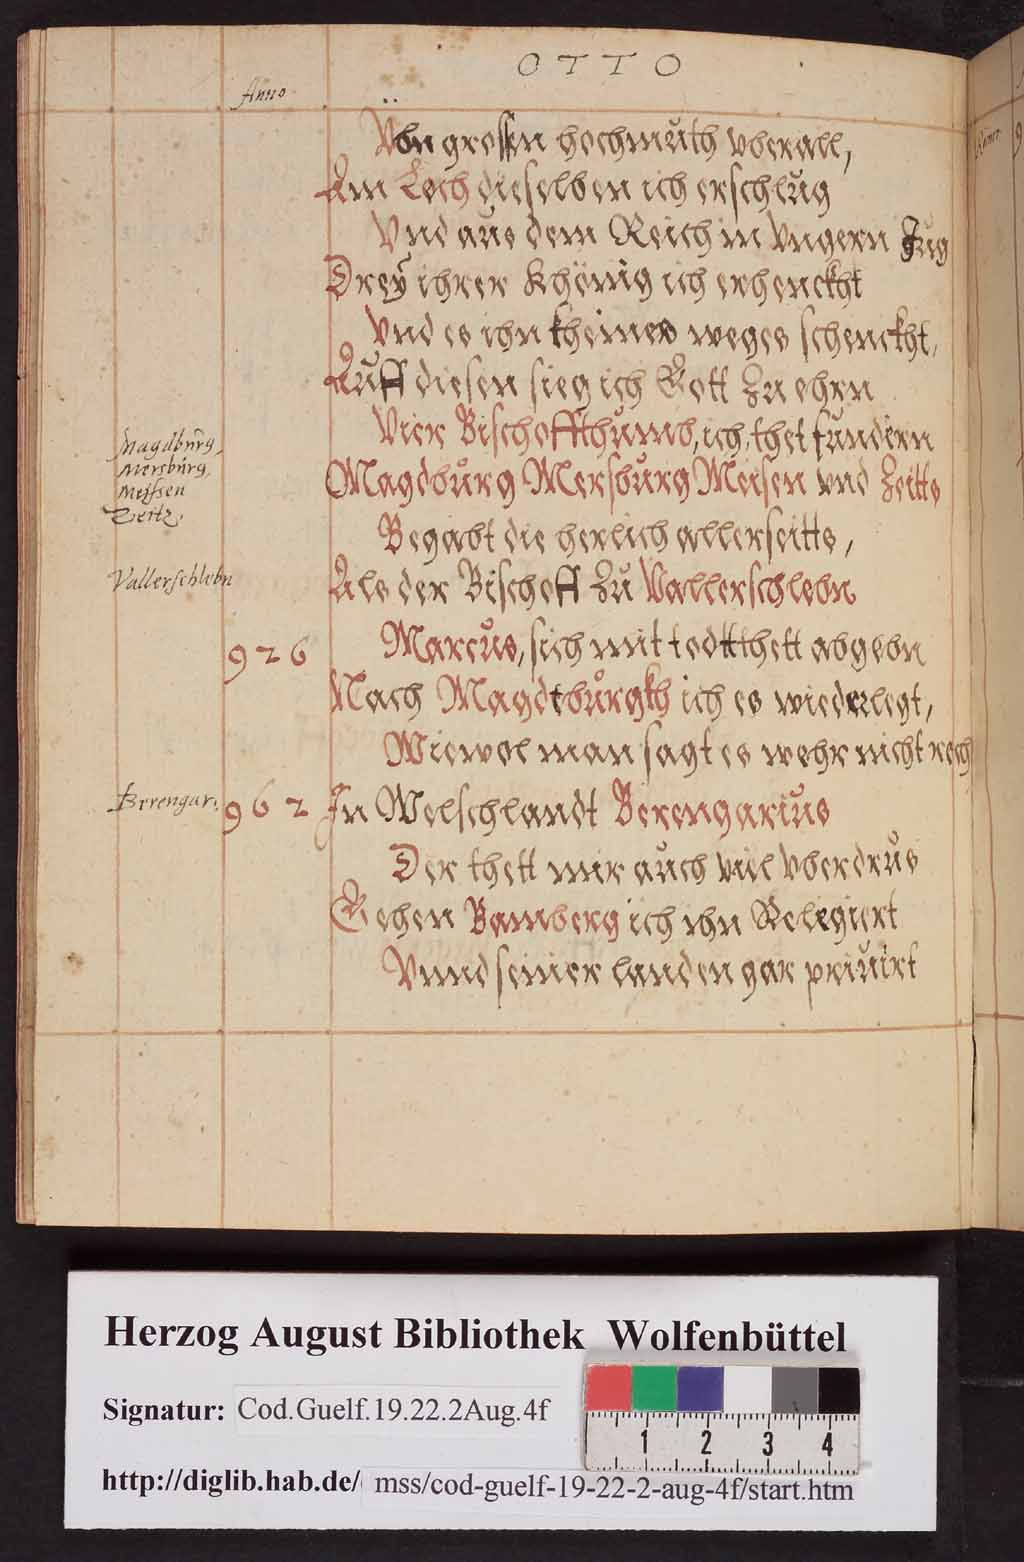 OTTO
Anno
Übn grossen hochmuth vberall,
Am Lech dieselben ich erschlug
Vnd aus dem Reich in Vngern Zug
Dreÿ ihrer Khönig ich erhenckht
Vnd es ihn kheines weges schenckht,
Auff diesen sieg ich Gott Zu ehrn
Vier Bischoffthumb, ich, thet fundirn
Magdburg,
Mersburg,
Meissen
Zeitz.
Magdburg Mersburg Meisen vnd Zeitts
Begabt die herlich allerseitts,
Vallerschlebn
Als der Bischoff Zu Vallerschlebn
926
Marcus, sich mit todt thett abgebn
Nach Magdtburgkh ich es wiederlegt,
Wiewol man sagt es wehr nicht rech
Berengar: 962
In Welschlandt Berengarius
Der thett mir auch viel vberdrus
Gehen Bamberg ich ihn Relegiert
Vnnd seiner landen gar priuirt
Herzog August Bibliothek Wolfenbüttel
Signatur: Cod.Guelf.19.22.2Aug.4f
1 2 3 4
http://diglib.hab.de/ mss/cod-guelf-19-22-2-aug-4f/start.htm